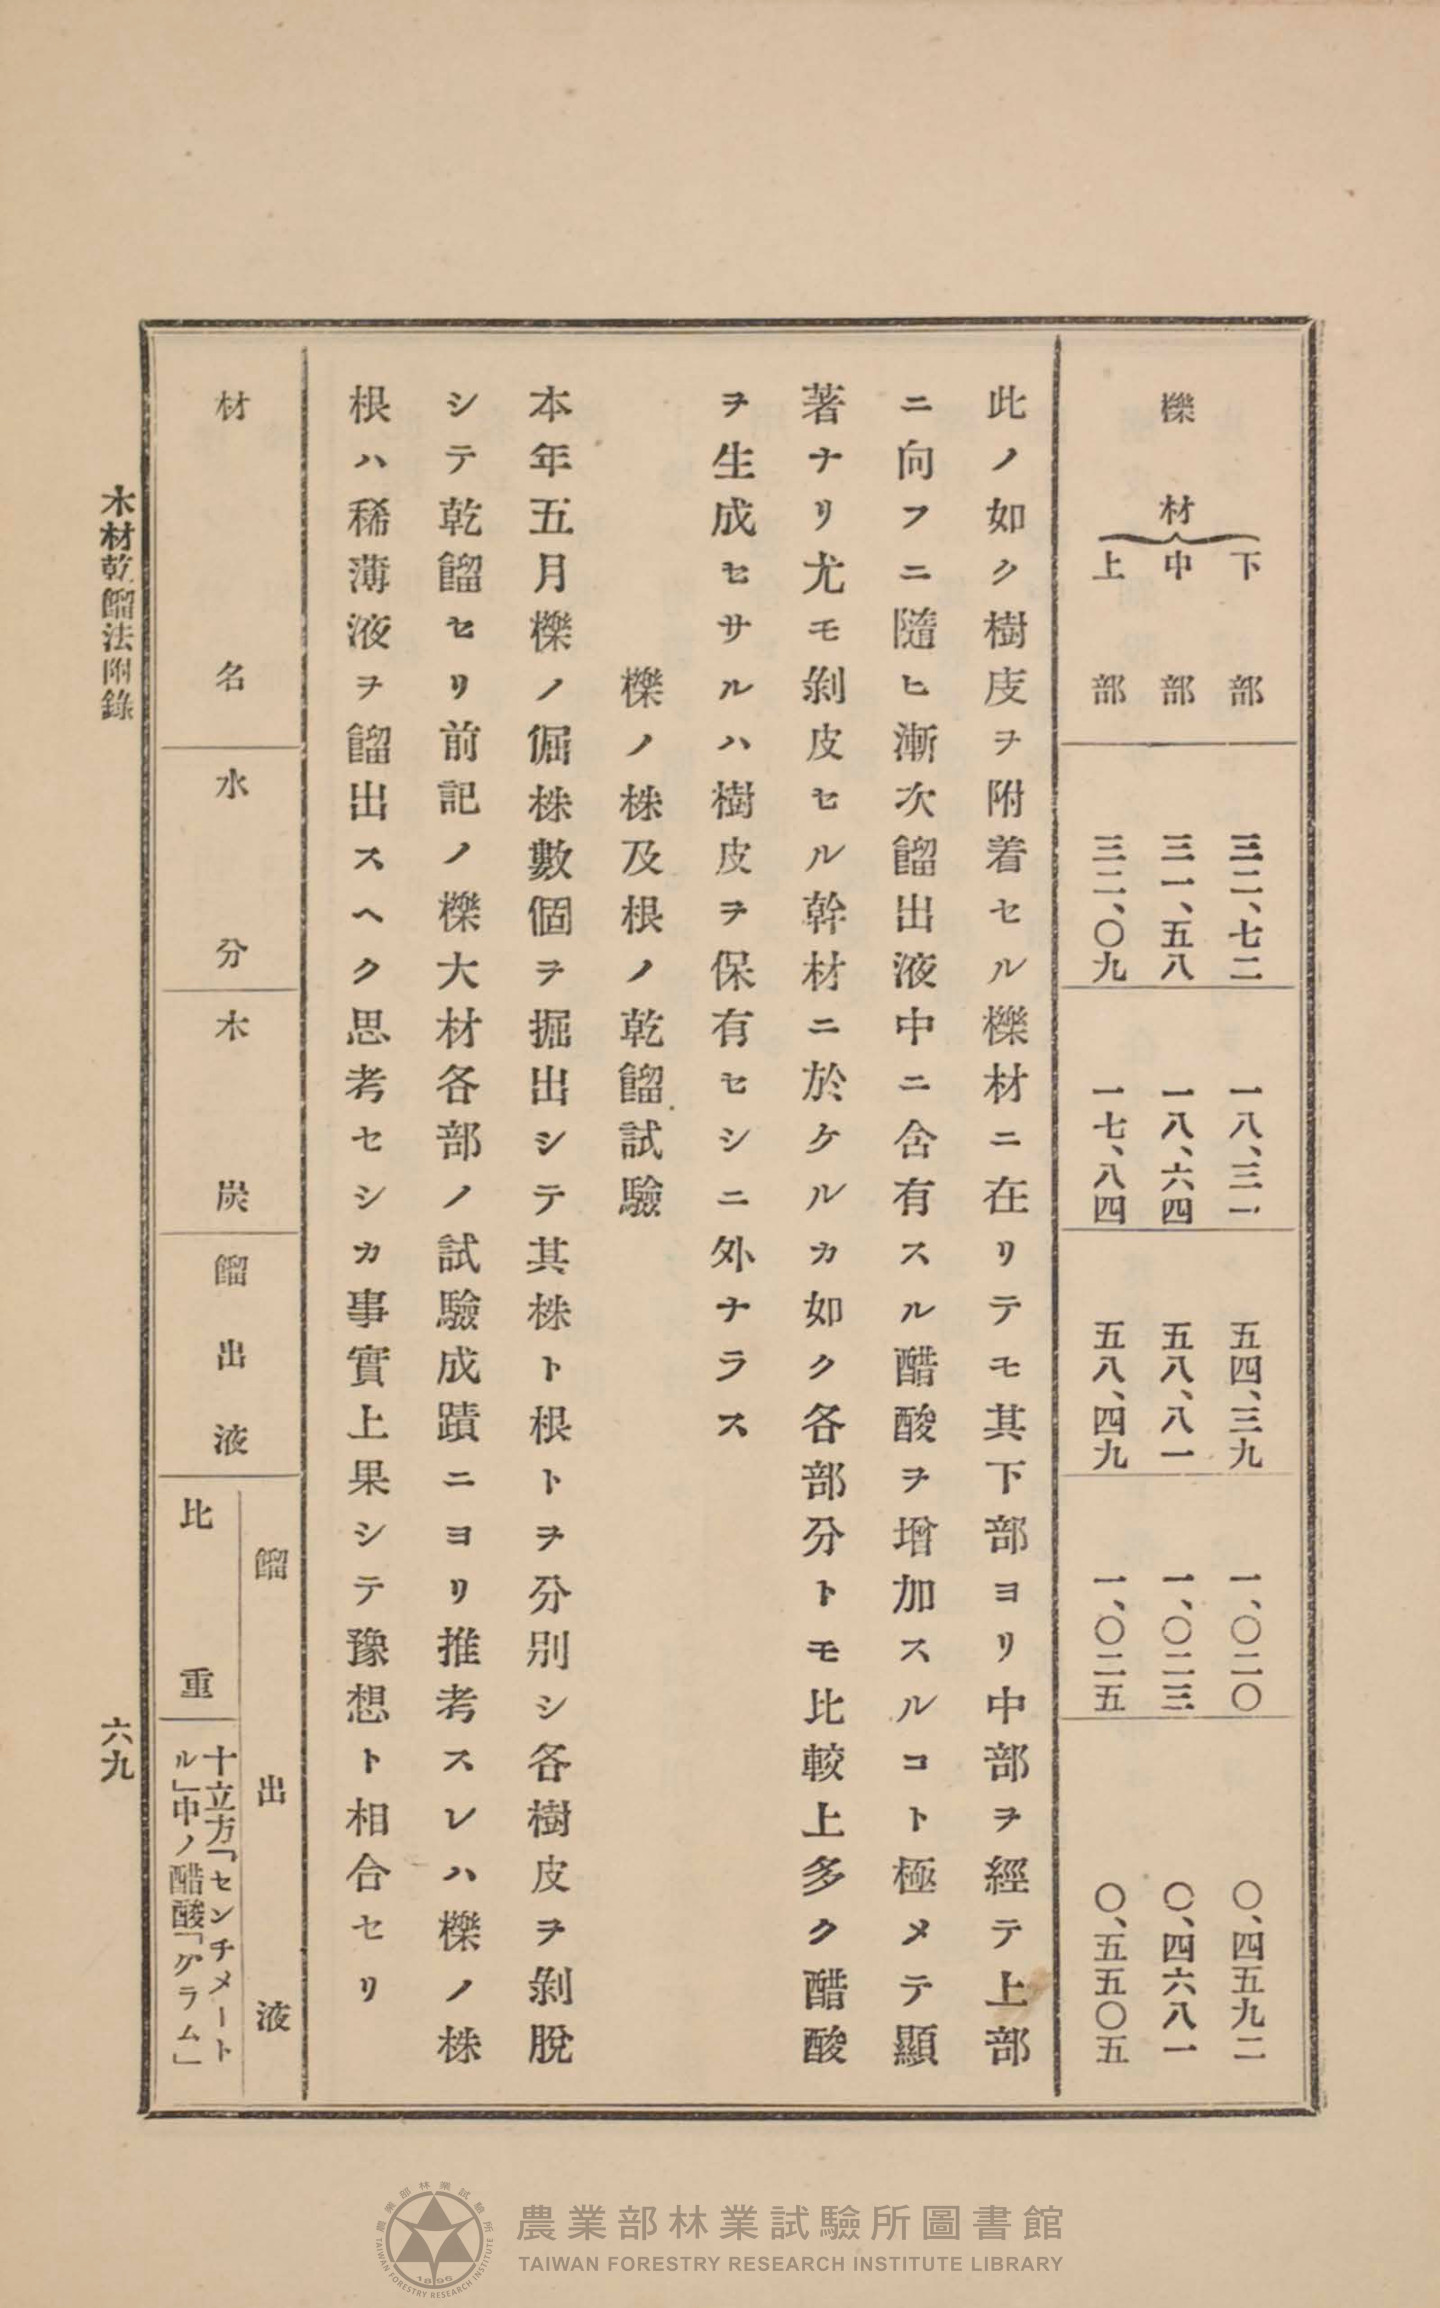 櫟材
下部 三二、七二 一八、三一 五四、三九 一、〇二〇 〇、四五九二
中部 三一、五八 一八、六四 五八、八一 一、〇二三 〇、四六八一
上部 三二、〇九 一七、八四 五八、四九 一、〇二五 〇、五五〇五
此ノ如ク樹皮ヲ附着セル櫟材ニ在リテモ其下部ヨリ中部ヲ經テ上部
ニ向フニ隨ヒ漸次餾出液中ニ含有スル醋酸ヲ增加スルコト極メテ顯
著ナリ尤モ剝皮セル幹材ニ於ケルカ如ク各部分トモ比較上多ク醋酸
ヲ生成セサルハ樹皮ヲ保有セシニ外ナラス
櫟ノ株及根ノ乾餾試驗
本年五月櫟ノ倔株數個ヲ掘出シテ其株ト根トヲ分別シ各樹皮ヲ剝脫
シテ乾餾セリ前記ノ櫟大材各部ノ試驗成蹟ニヨリ推考スレハ櫟ノ株
根ハ稀薄液ヲ餾出スヘク思考セシカ事實上果シテ豫想ト相合セリ
餾出液
材名 水分 木炭 餾出液 比重 十立方「センチメート
ル」中ノ醋酸「グラム」
木材乾餾法附錄 六九
農業部林業試驗所圖書館
TAIWAN FORESTRY RESEARCH INSTITUTE LIBRARY
農業部林業試驗所
TAIWAN FORESTRY RESEARCH INSTITUTE
1896